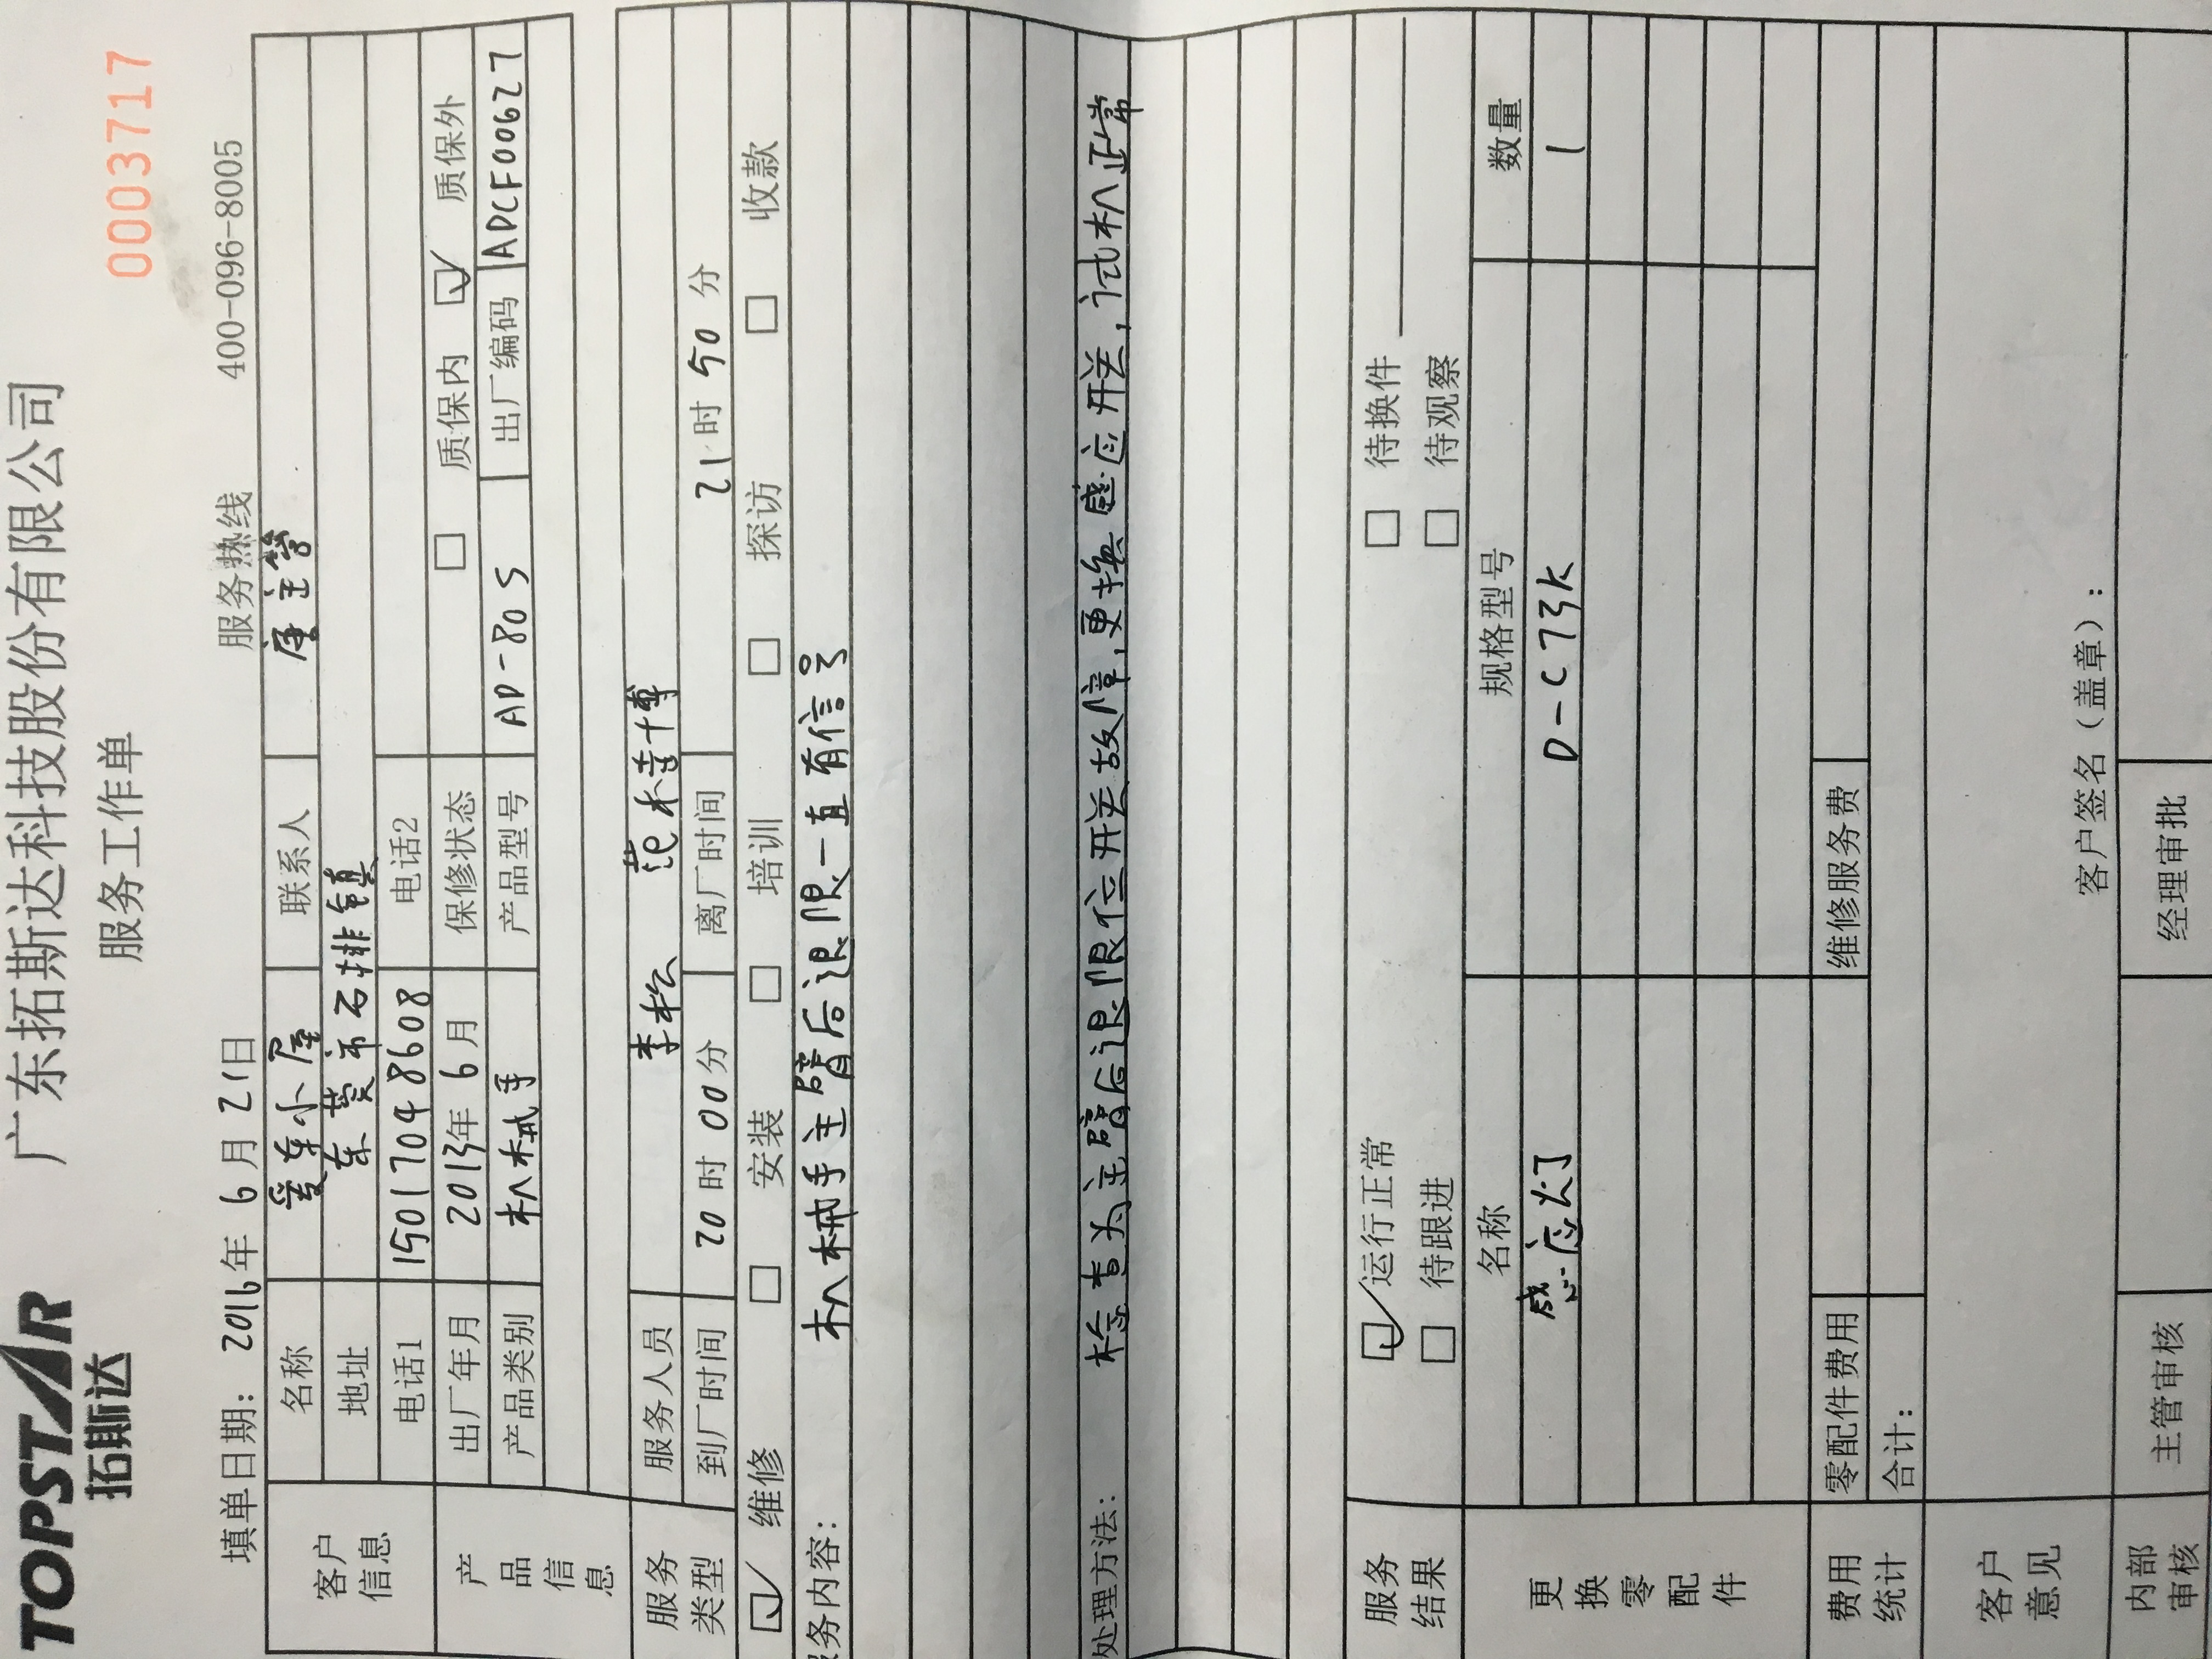 TOPSTAR 广东拓斯达科技股份有限公司
拓斯达 服务工作单 0003717
填单日期: 2016年 6月 21日 服务热线 400-096-8005
客户信息
名称 爱车小屋 联系人 主管
地址 东莞市石排镇
电话1 15017048608 电话2
产品信息
出厂年月 2013年 6月 保修状态 □ 质保内 ☑ 质保外
产品类别 机械手 产品型号 AD-80S 出厂编码 ADCF00627
服务类型
服务人员 李松 范
到厂时间 20时 00分 离厂时间 21时 50分
☑ 维修 □ 安装 □ 培训 □ 探访 □ 收款
务内容: 机械手主臂后退限一直有信号
处理方法: 检查为主臂后退限位开关故障,更换感应开关,试机正常
服务结果
☑ 运行正常 □ 待换件
□ 待跟进 □ 待观察
更换零配件
名称 规格型号 数量
感应灯 D-C73K 1
费用统计
零配件费用 维修服务费
合计:
客户意见
客户签名(盖章):
内部审核 主管审核 经理审批